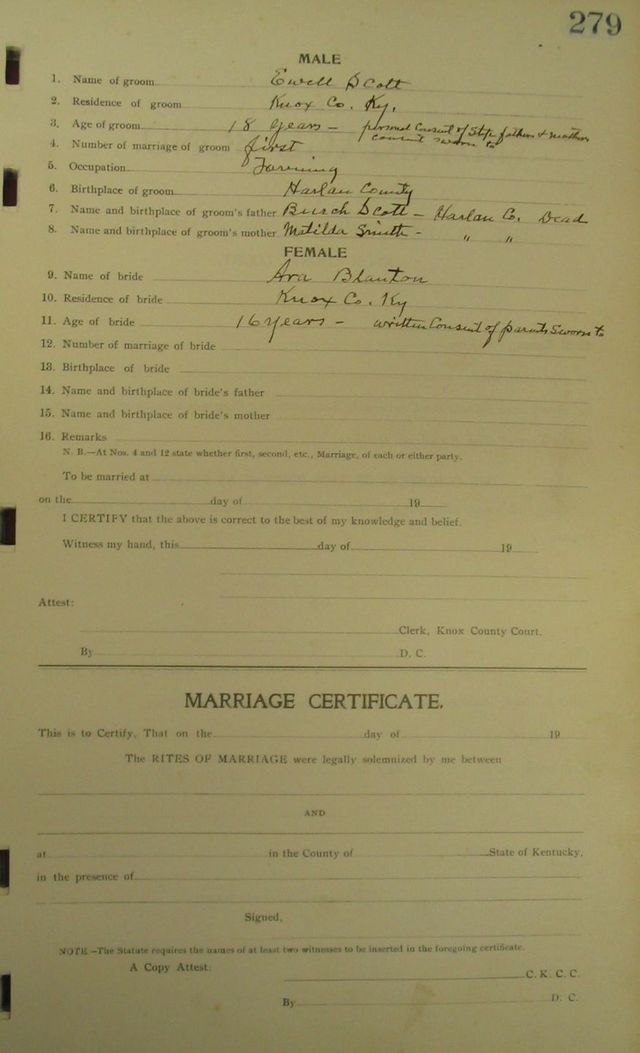 279
MALE
1. Name of groom Ewell Scott
2. Residence of groom Knox Co. Ky.
3. Age of groom 18 years - personal Consent of Step father & mother
consent sworn to
4. Number of marriage of groom first
5. Occupation Farming
6. Birthplace of groom Harlan County
7. Name and birthplace of groom's father Burch Scott - Harlan Co. Dead
8. Name and birthplace of groom's mother Matilda Smith - " "
FEMALE
9. Name of bride Ara Blanton
10. Residence of bride Knox Co. Ky
11. Age of bride 16 years - written Consent of parents Sworn to
12. Number of marriage of bride
13. Birthplace of bride
14. Name and birthplace of bride's father
15. Name and birthplace of bride's mother
16. Remarks
N. B.—At Nos. 4 and 12 state whether first, second, etc., Marriage, of each or either party.
To be married at
on the day of 19
I CERTIFY that the above is correct to the best of my knowledge and belief.
Witness my hand, this day of 19
Attest:
Clerk, Knox County Court.
By D. C.
MARRIAGE CERTIFICATE.
This is to Certify, That on the day of 19
The RITES OF MARRIAGE were legally solemnized by me between
AND
at in the County of State of Kentucky,
in the presence of
Signed,
NOTE—The Statute requires the names of at least two witnesses to be inserted in the foregoing certificate.
A Copy Attest:
C. K. C. C.
By D. C.